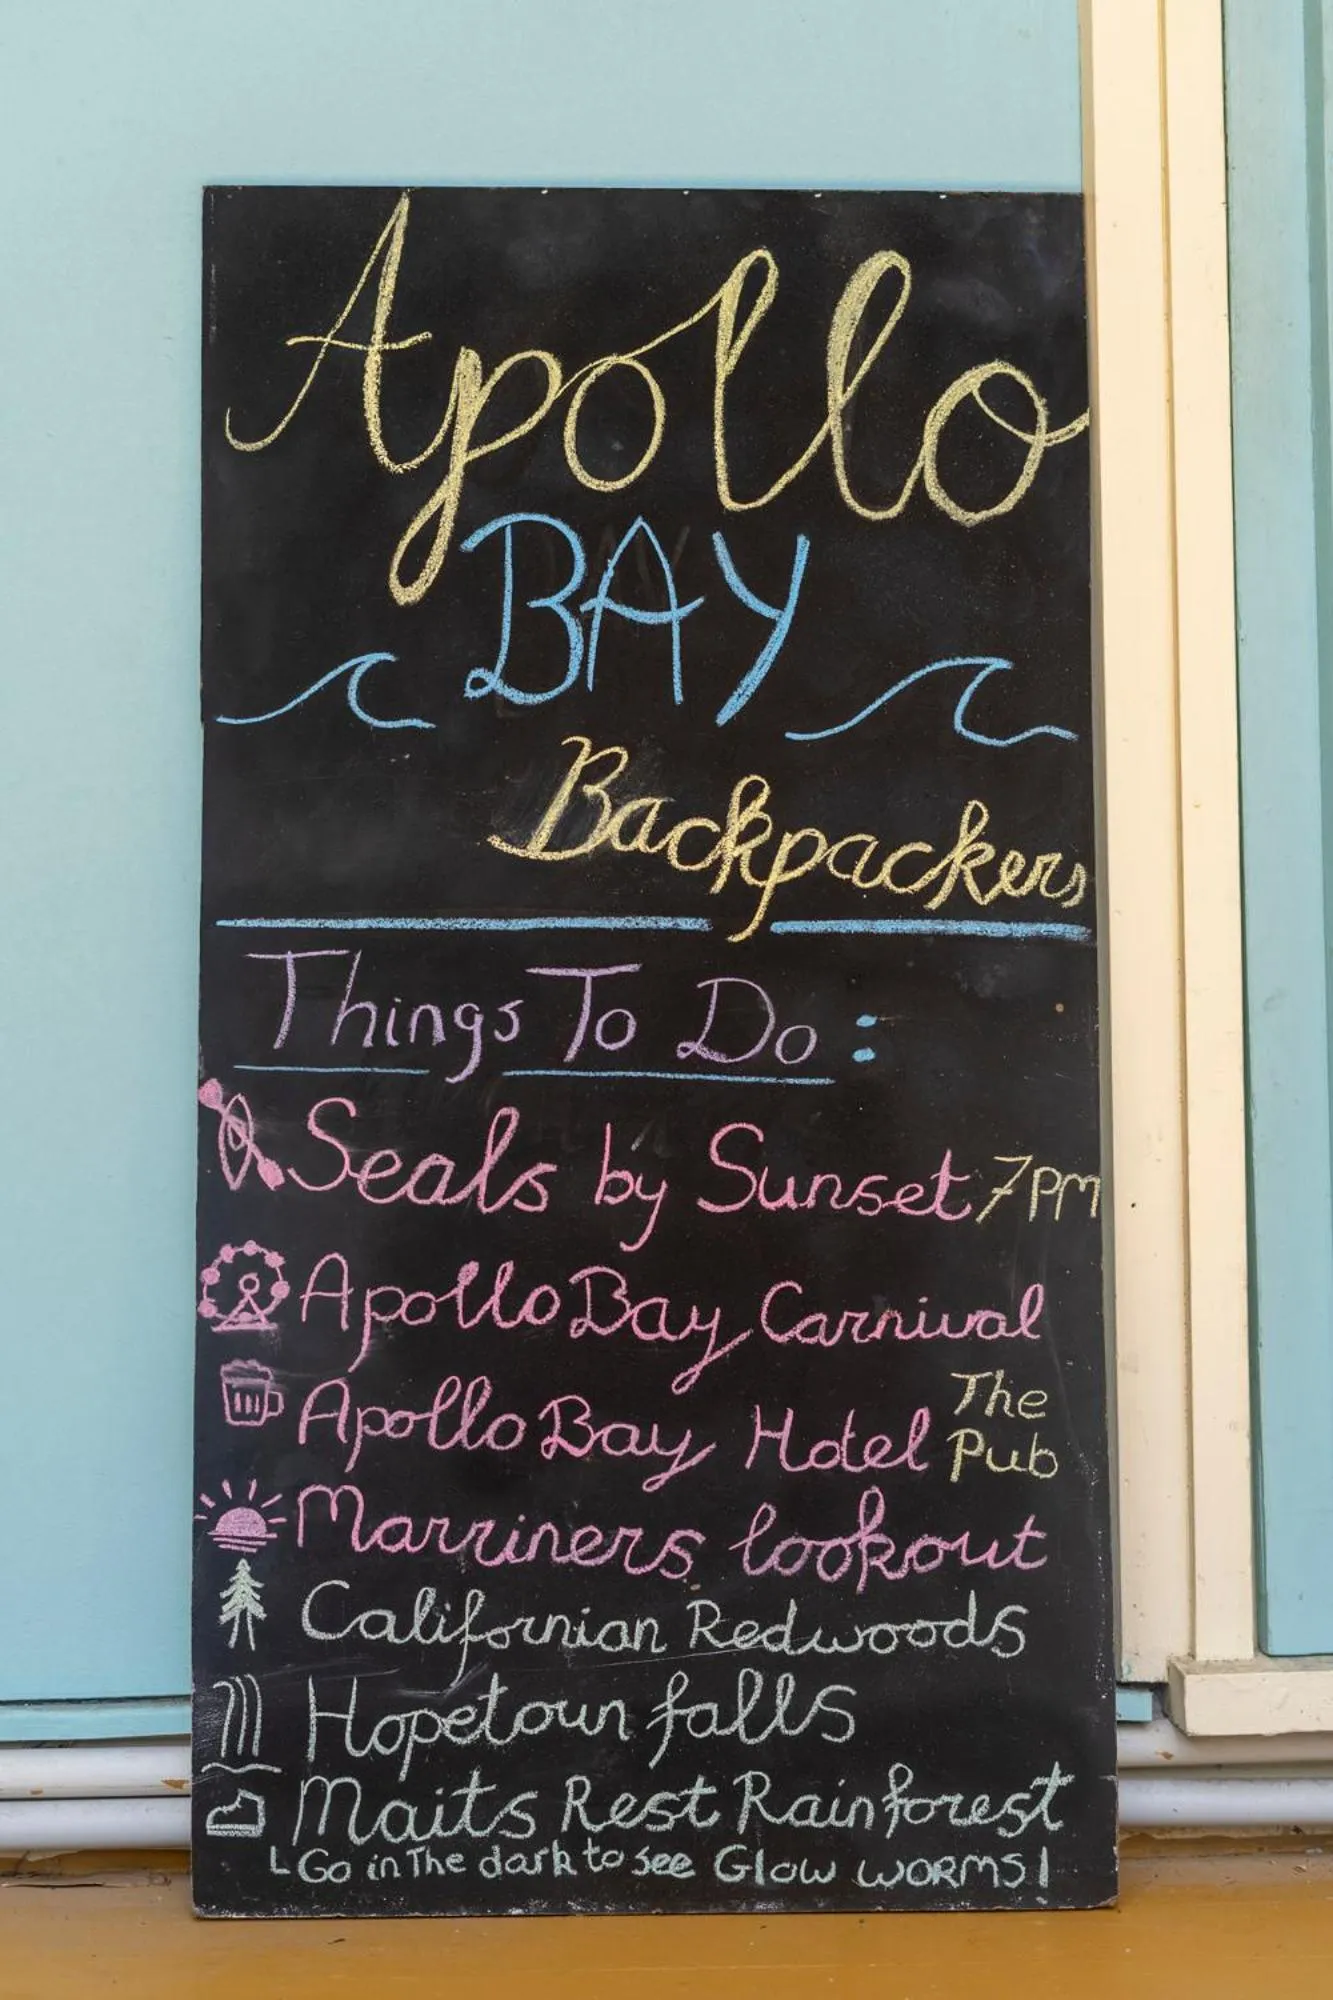 Apollo
BAY
Backpackers
Things To Do :
Seals by Sunset 7PM
Apollo Bay Carnival
Apollo Bay Hotel The Pub
Marriners lookout
Californian Redwoods
Hopetoun falls
Maits Rest Rainforest
Go in The dark to see Glow worms!